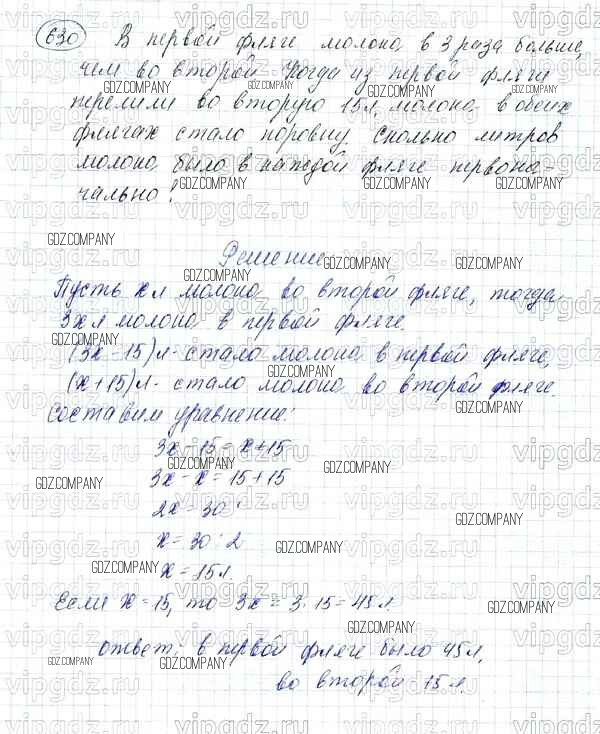 630 В первой фляге молока в 3 раза больше,
чем во второй. Когда из первой фляги
перелили во вторую 15 л. молока в обеих
флягах стало поровну. Сколько литров
молока было в каждой фляге первона-
чально?
Решение
Пусть х л молока во второй фляге, тогда
3х л молока в первой фляге.
(3х - 15) л - стало молока в первой фляге,
(х + 15) л - стало молока во второй фляге.
Составим уравнение:
3х - 15 = х + 15
3х - х = 15 + 15
2х = 30
х = 30 : 2
х = 15 л.
Если х = 15, то 3х = 3 · 15 = 45 л
Ответ: в первой фляге было 45 л,
во второй - 15 л.